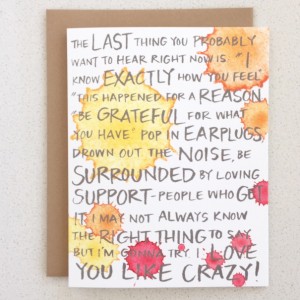 THE LAST THING YOU PROBABLY
WANT TO HEAR RIGHT NOW IS "I
KNOW EXACTLY HOW YOU FEEL"
"THIS HAPPENED FOR A REASON"
"BE GRATEFUL FOR WHAT
YOU HAVE" POP IN EARPLUGS,
DROWN OUT THE NOISE, BE
SURROUNDED BY LOVING
SUPPORT-PEOPLE WHO GET
IT. I MAY NOT ALWAYS KNOW
THE RIGHT THING TO SAY
BUT I'M GONNA TRY. I LOVE
YOU LIKE CRAZY!